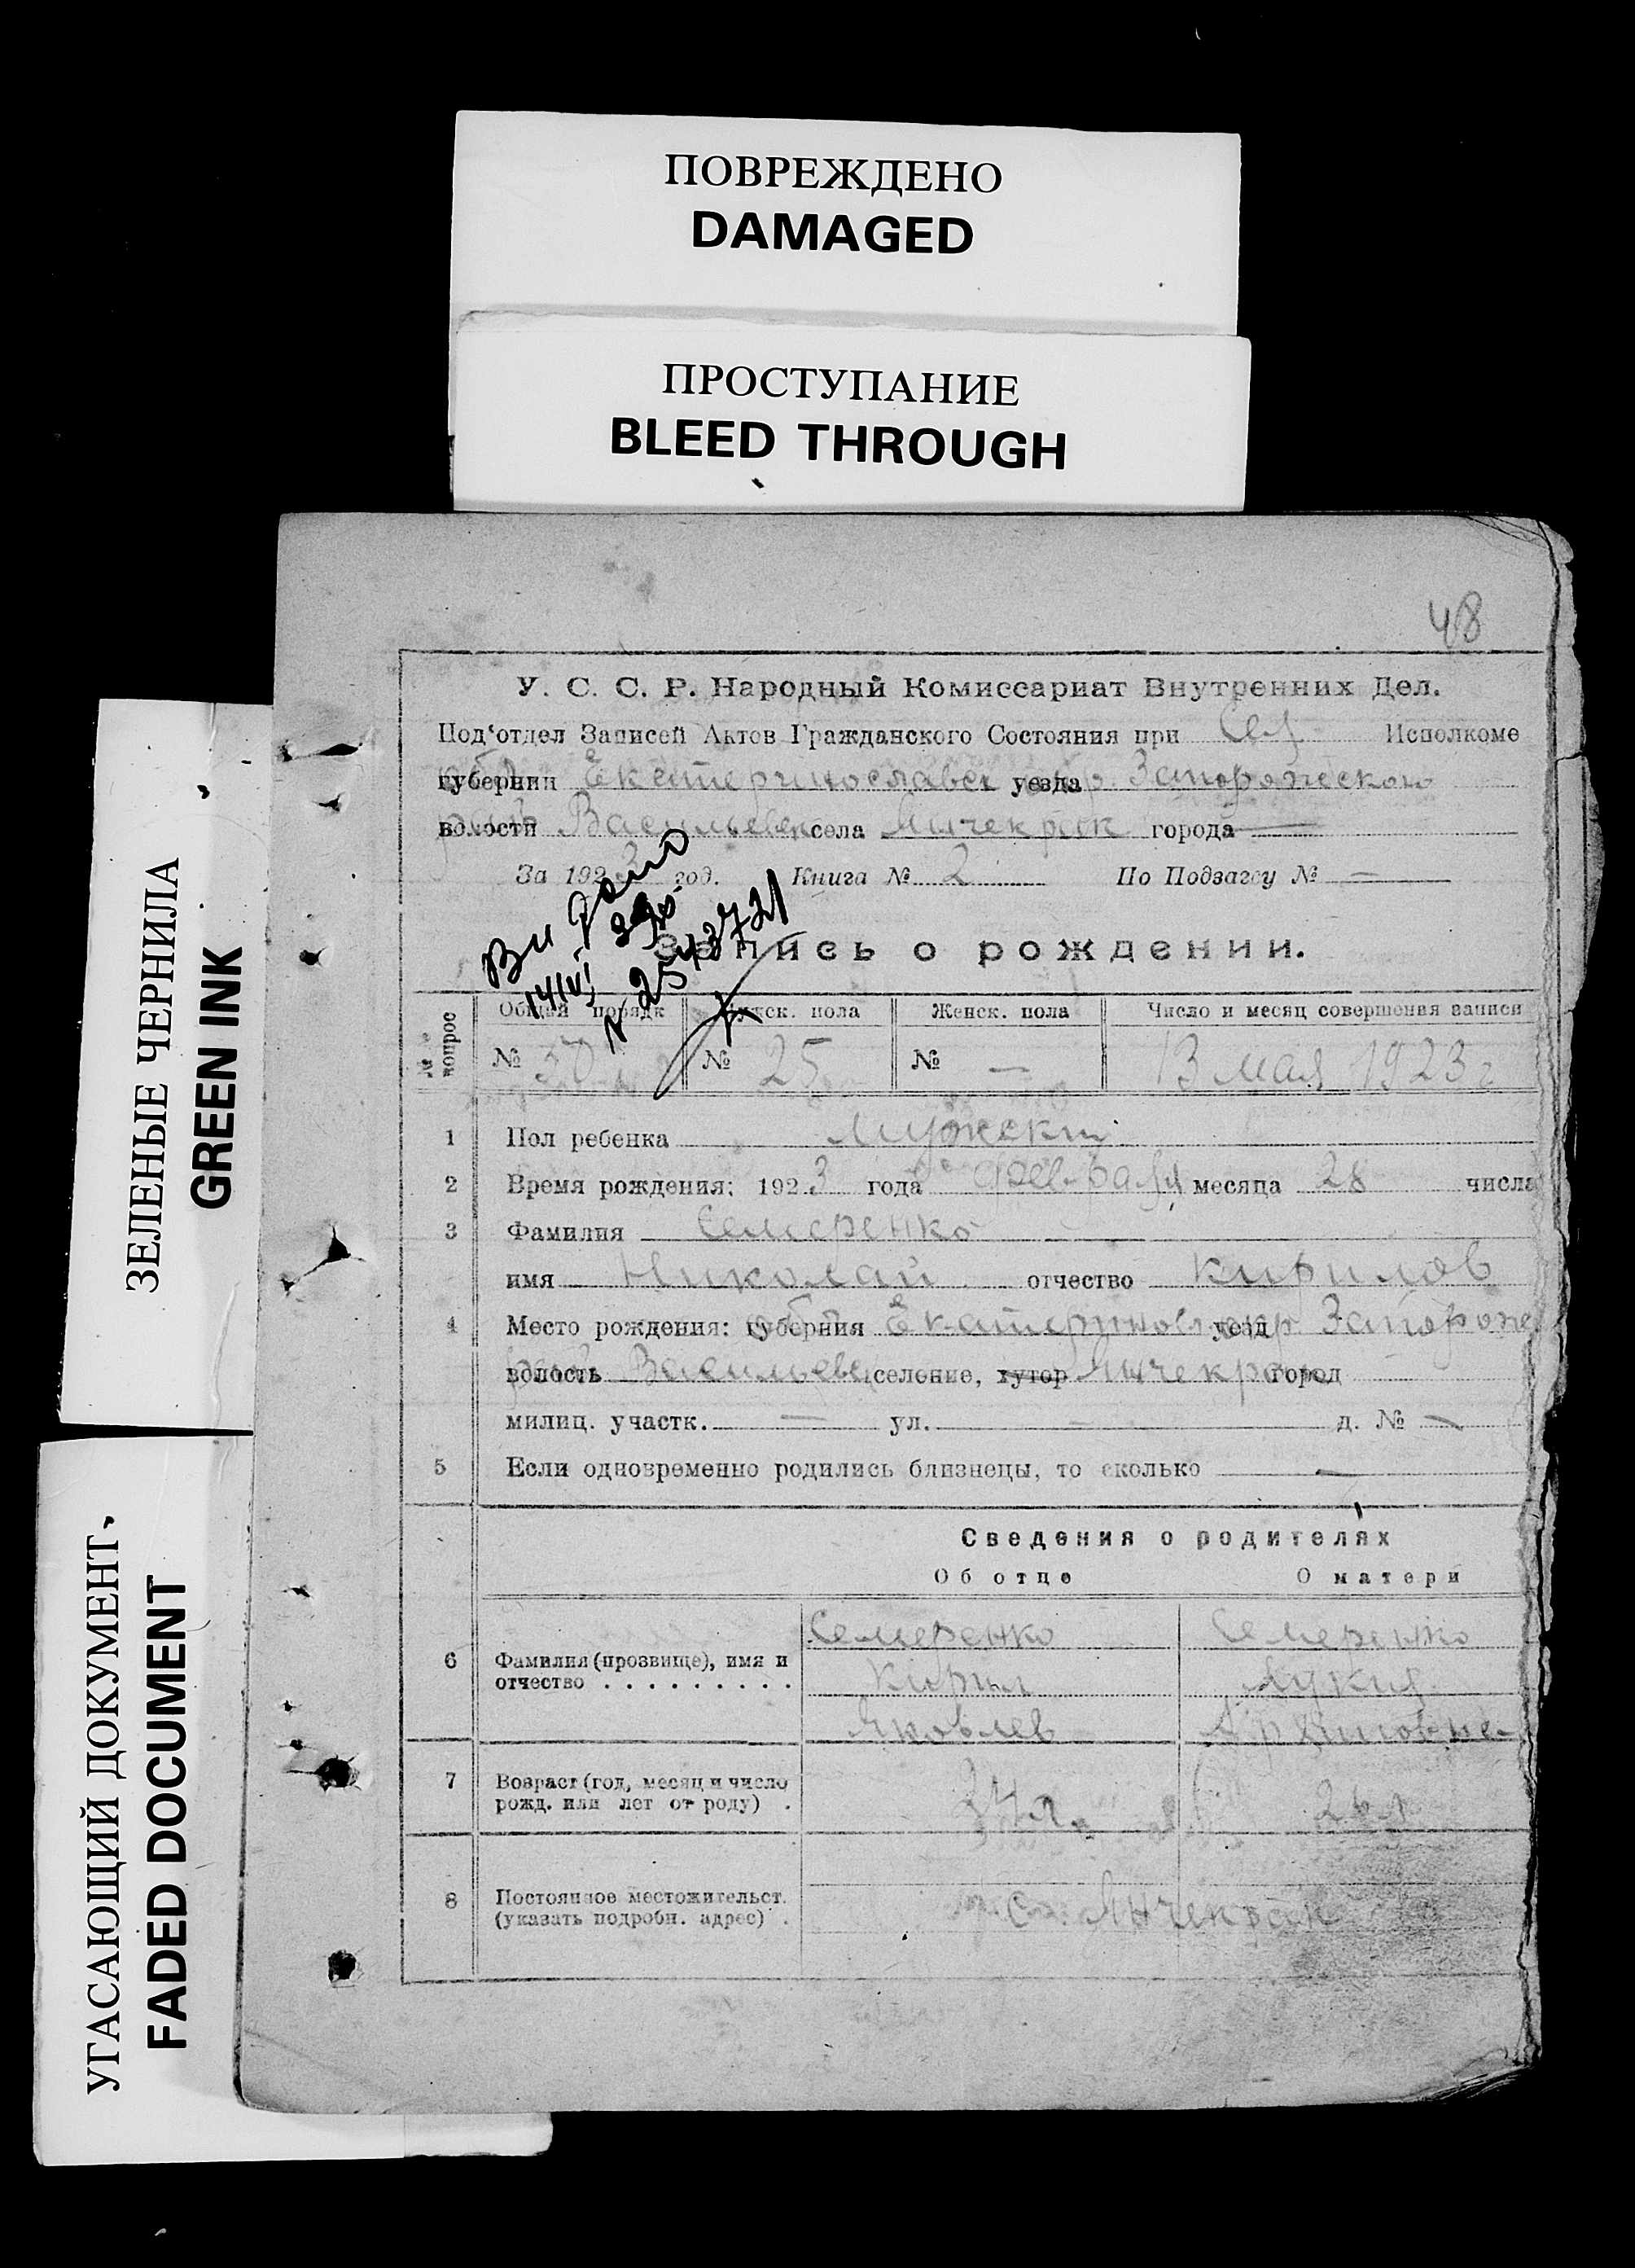 ПОВРЕЖДЕНО
DAMAGED
ПРОСТУПАНИЕ
BLEED THROUGH
ЗЕЛЕНЫЕ ЧЕРНИЛА
GREEN INK
УГАСАЮЩИЙ ДОКУМЕНТ
FADED DOCUMENT
48
У. С. С. Р. Народный Комиссариат Внутренних Дел.
Под'отдел Записей Актов Гражданского Состояния при Сел Исполкоме
губернии Екатеринославск уезда Запорожского
волости Васильевск села Янчекрак города —
За 1923 год. Книга № 2 По Подзагсу № —
Видано
14/VI
№ 254372
Запись о рождении.
№№ вопрос
Общий порядк Мужск. пола Женск. пола Число и месяц совершения записи
№ 30 № 25 № — 13 мая 1923 г
1 Пол ребенка Мужеский
2 Время рождения: 1923 года февраля месяца 28 числа
3 Фамилия Семеренко
имя Николай отчество Кирилов
4 Место рождения: губерния Екатеринослав уезд окр. Запорож
волость Васильевск селение, хутор Янчекрак город
милиц. участк. — ул. — д. № —
5 Если одновременно родились близнецы, то сколько —
Сведения о родителях
Об отце О матери
6 Фамилия (прозвище), имя и отчество . . . . . . . . .
Семеренко Семеренко
Кирил Лукия
Яковлев Архиповна
7 Возраст (год, месяц и число рожд. или лет от роду) .
34 л. 26 л
8 Постоянное местожительст. (указать подробн. адрес) .
с. Янчекрак